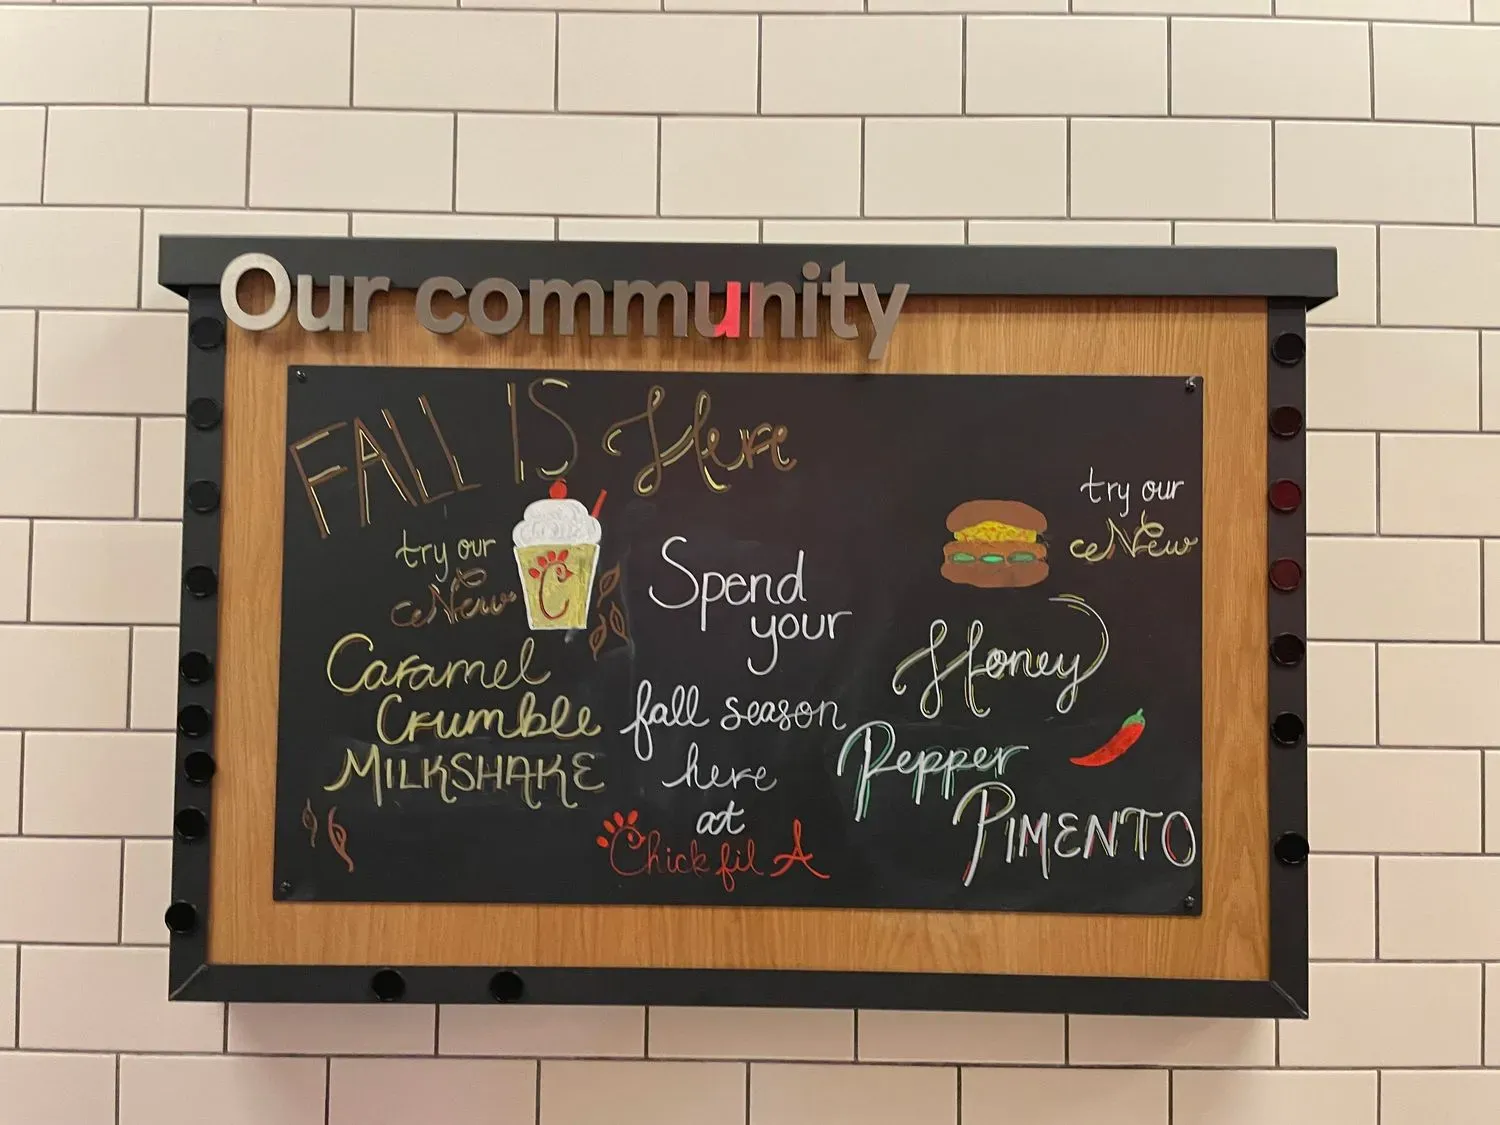 Our community
FALL IS Here
try our
New
Caramel
Crumble
MILKSHAKE
Spend
your
fall season
here
at
Chick fil A
try our
New
Honey
Pepper
PIMENTO